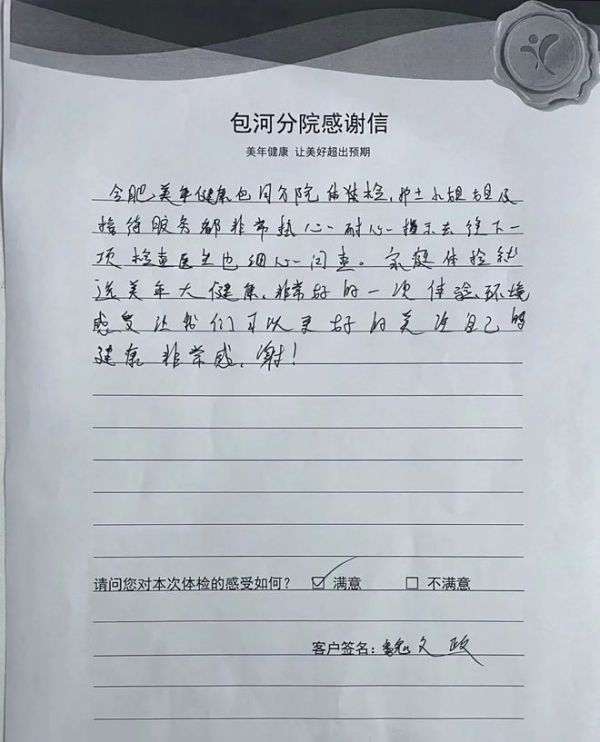 包河分院感谢信
美年健康 让美好超出预期
合肥美年健康包河分院体检,护士小姐姐及
接待服务都非常热心、耐心指示去往下一
项检查医生也细心问查。家庭体检就
选美年大健康,非常好的一次体验环境
感受让我们可以更好的关注自己的
健康非常感谢!
请问您对本次体检的感受如何? ☑ 满意 □ 不满意
客户签名:魏文政